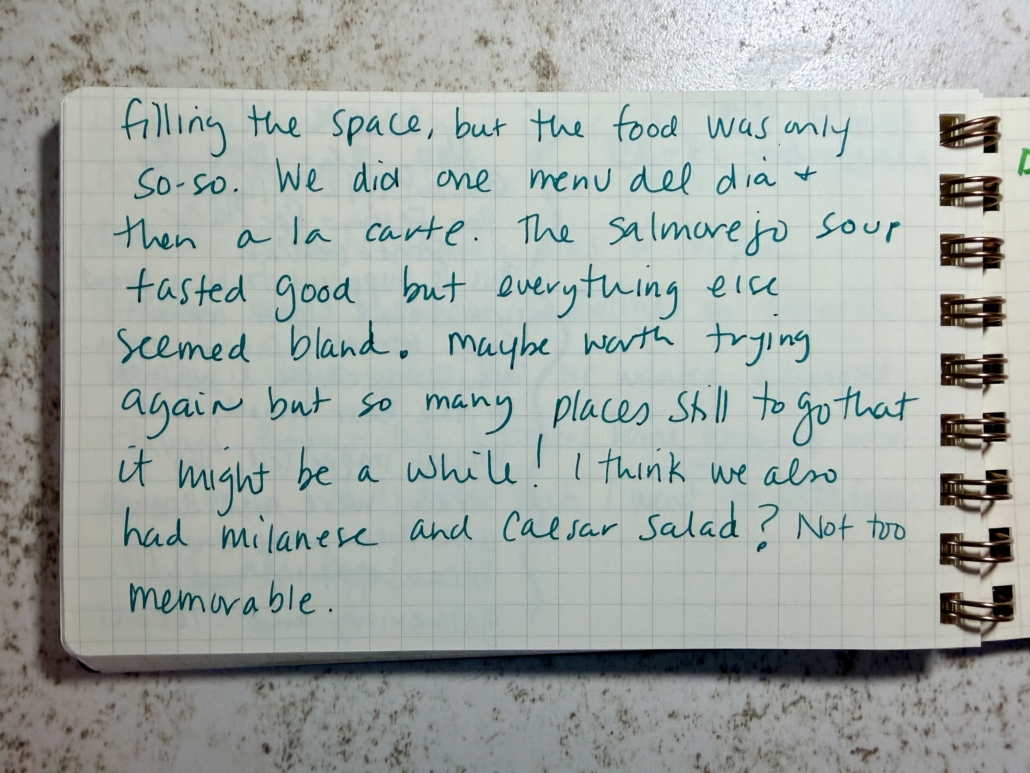 filling the space, but the food was only
so-so. We did one menu del dia +
then a la carte. The salmorejo soup
tasted good but everything else
seemed bland. maybe worth trying
again but so many places still to go that
it might be a while! I think we also
had milanese and Caesar salad? Not too
memorable.